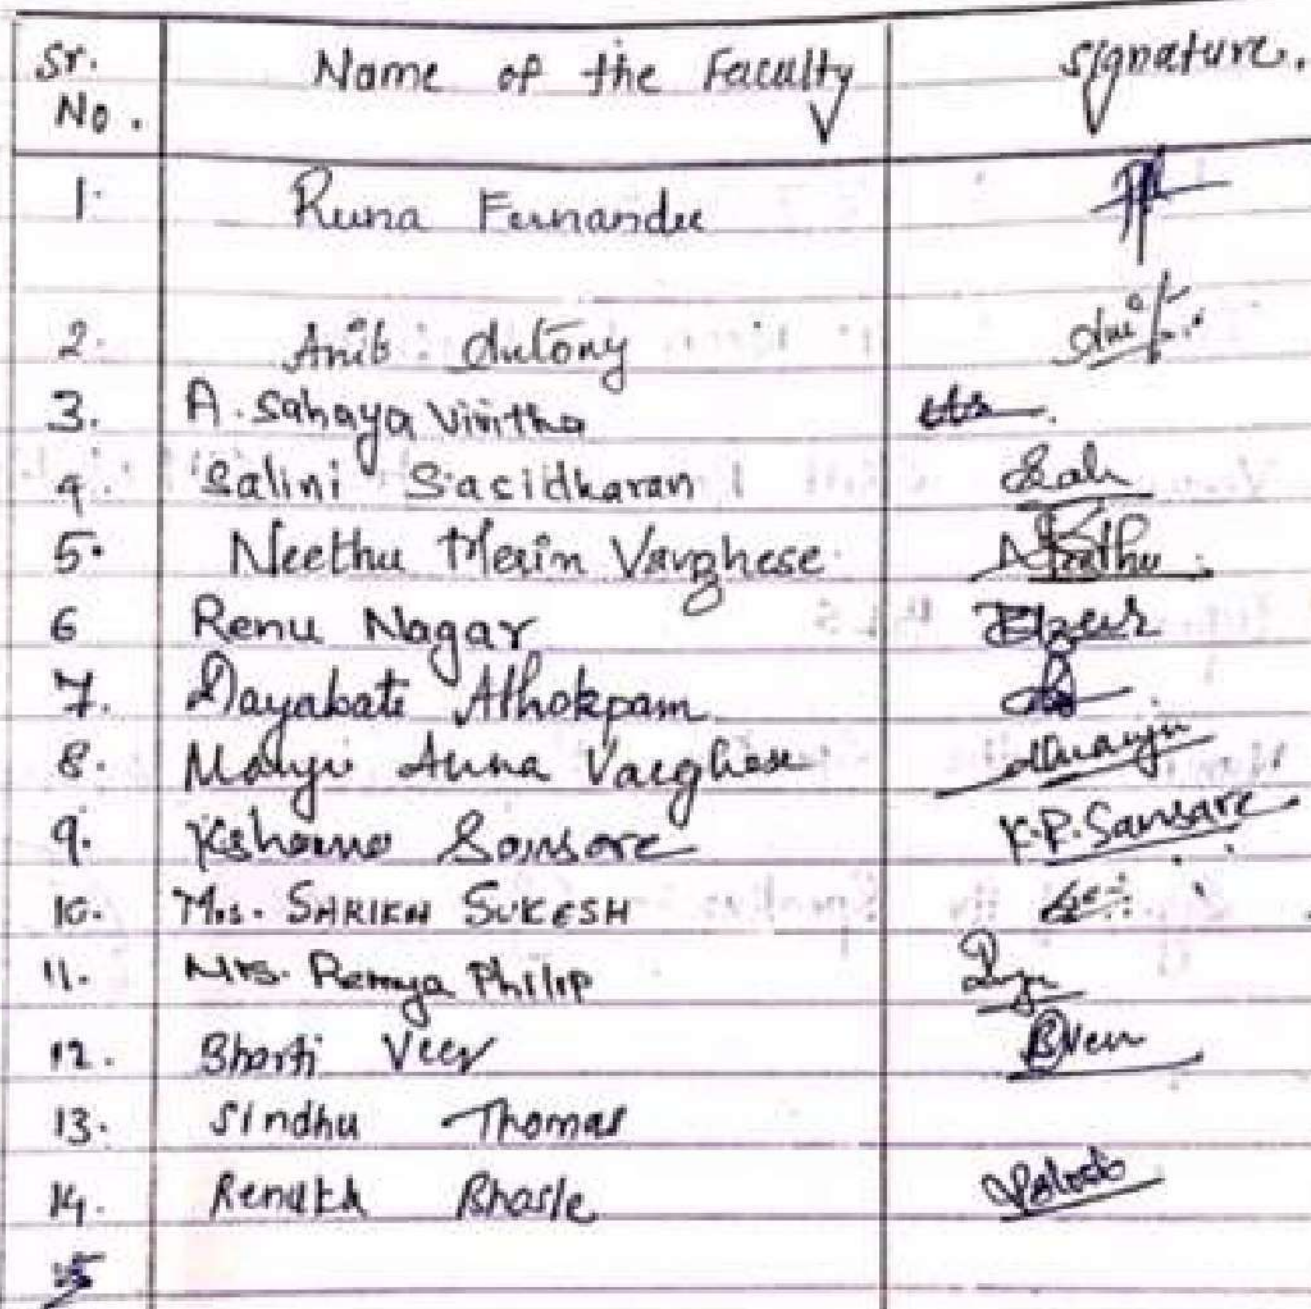 Sr. No. Name of the Faculty Signature.
1. Runa Fernandes
2. Anit Antony
3. A. Sahaya Vinitha
4. Salini Sasidharan Sali
5. Neethu Merin Varghese Neethu
6 Renu Nagar
7. Dayabati Athokpam
8. Manju Anna Varghese Manju
9. Kshama Sansare K.P. Sansare
10. Mrs. SHRIKH SUKESH
11. Mrs. Remya Philip
12. Bharti Veer BVeer
13. Sindhu Thomas
14. Renuka Bhasle
15